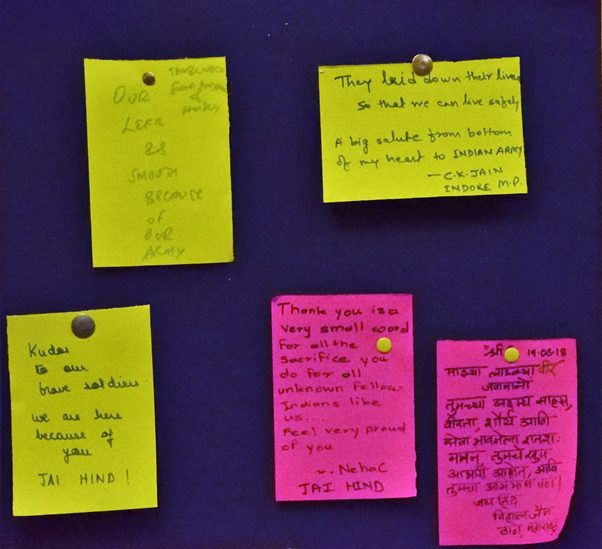 OUR
LEFE
IS
SMOUTH
BECOUSE
OF
OUR
ARMY
They laid down their lives
so that we can live safely
A big salute from bottom
of my heart to INDIAN ARMY
— C.K. JAIN
INDORE M.P.
Kudos
to our
brave soldiers
we are here
because of
you
JAI HIND !
Thank you is a
very small word
for all the
sacrifice you
do for all
unknown fellow
Indians like
us...
Feel very proud
of you
~. NehaC
JAI HIND
"श्री" 19.06.18
माझ्या लाडक्या वीर
जवानांनो
तुमच्या अदम्य साहस,
वीरता, शौर्य आणि
सेवा भावनेला शतशः
नमन. तुमचे खूप
आभारी आहोत, आणि
तुमचा अभिमान
जय हिंद